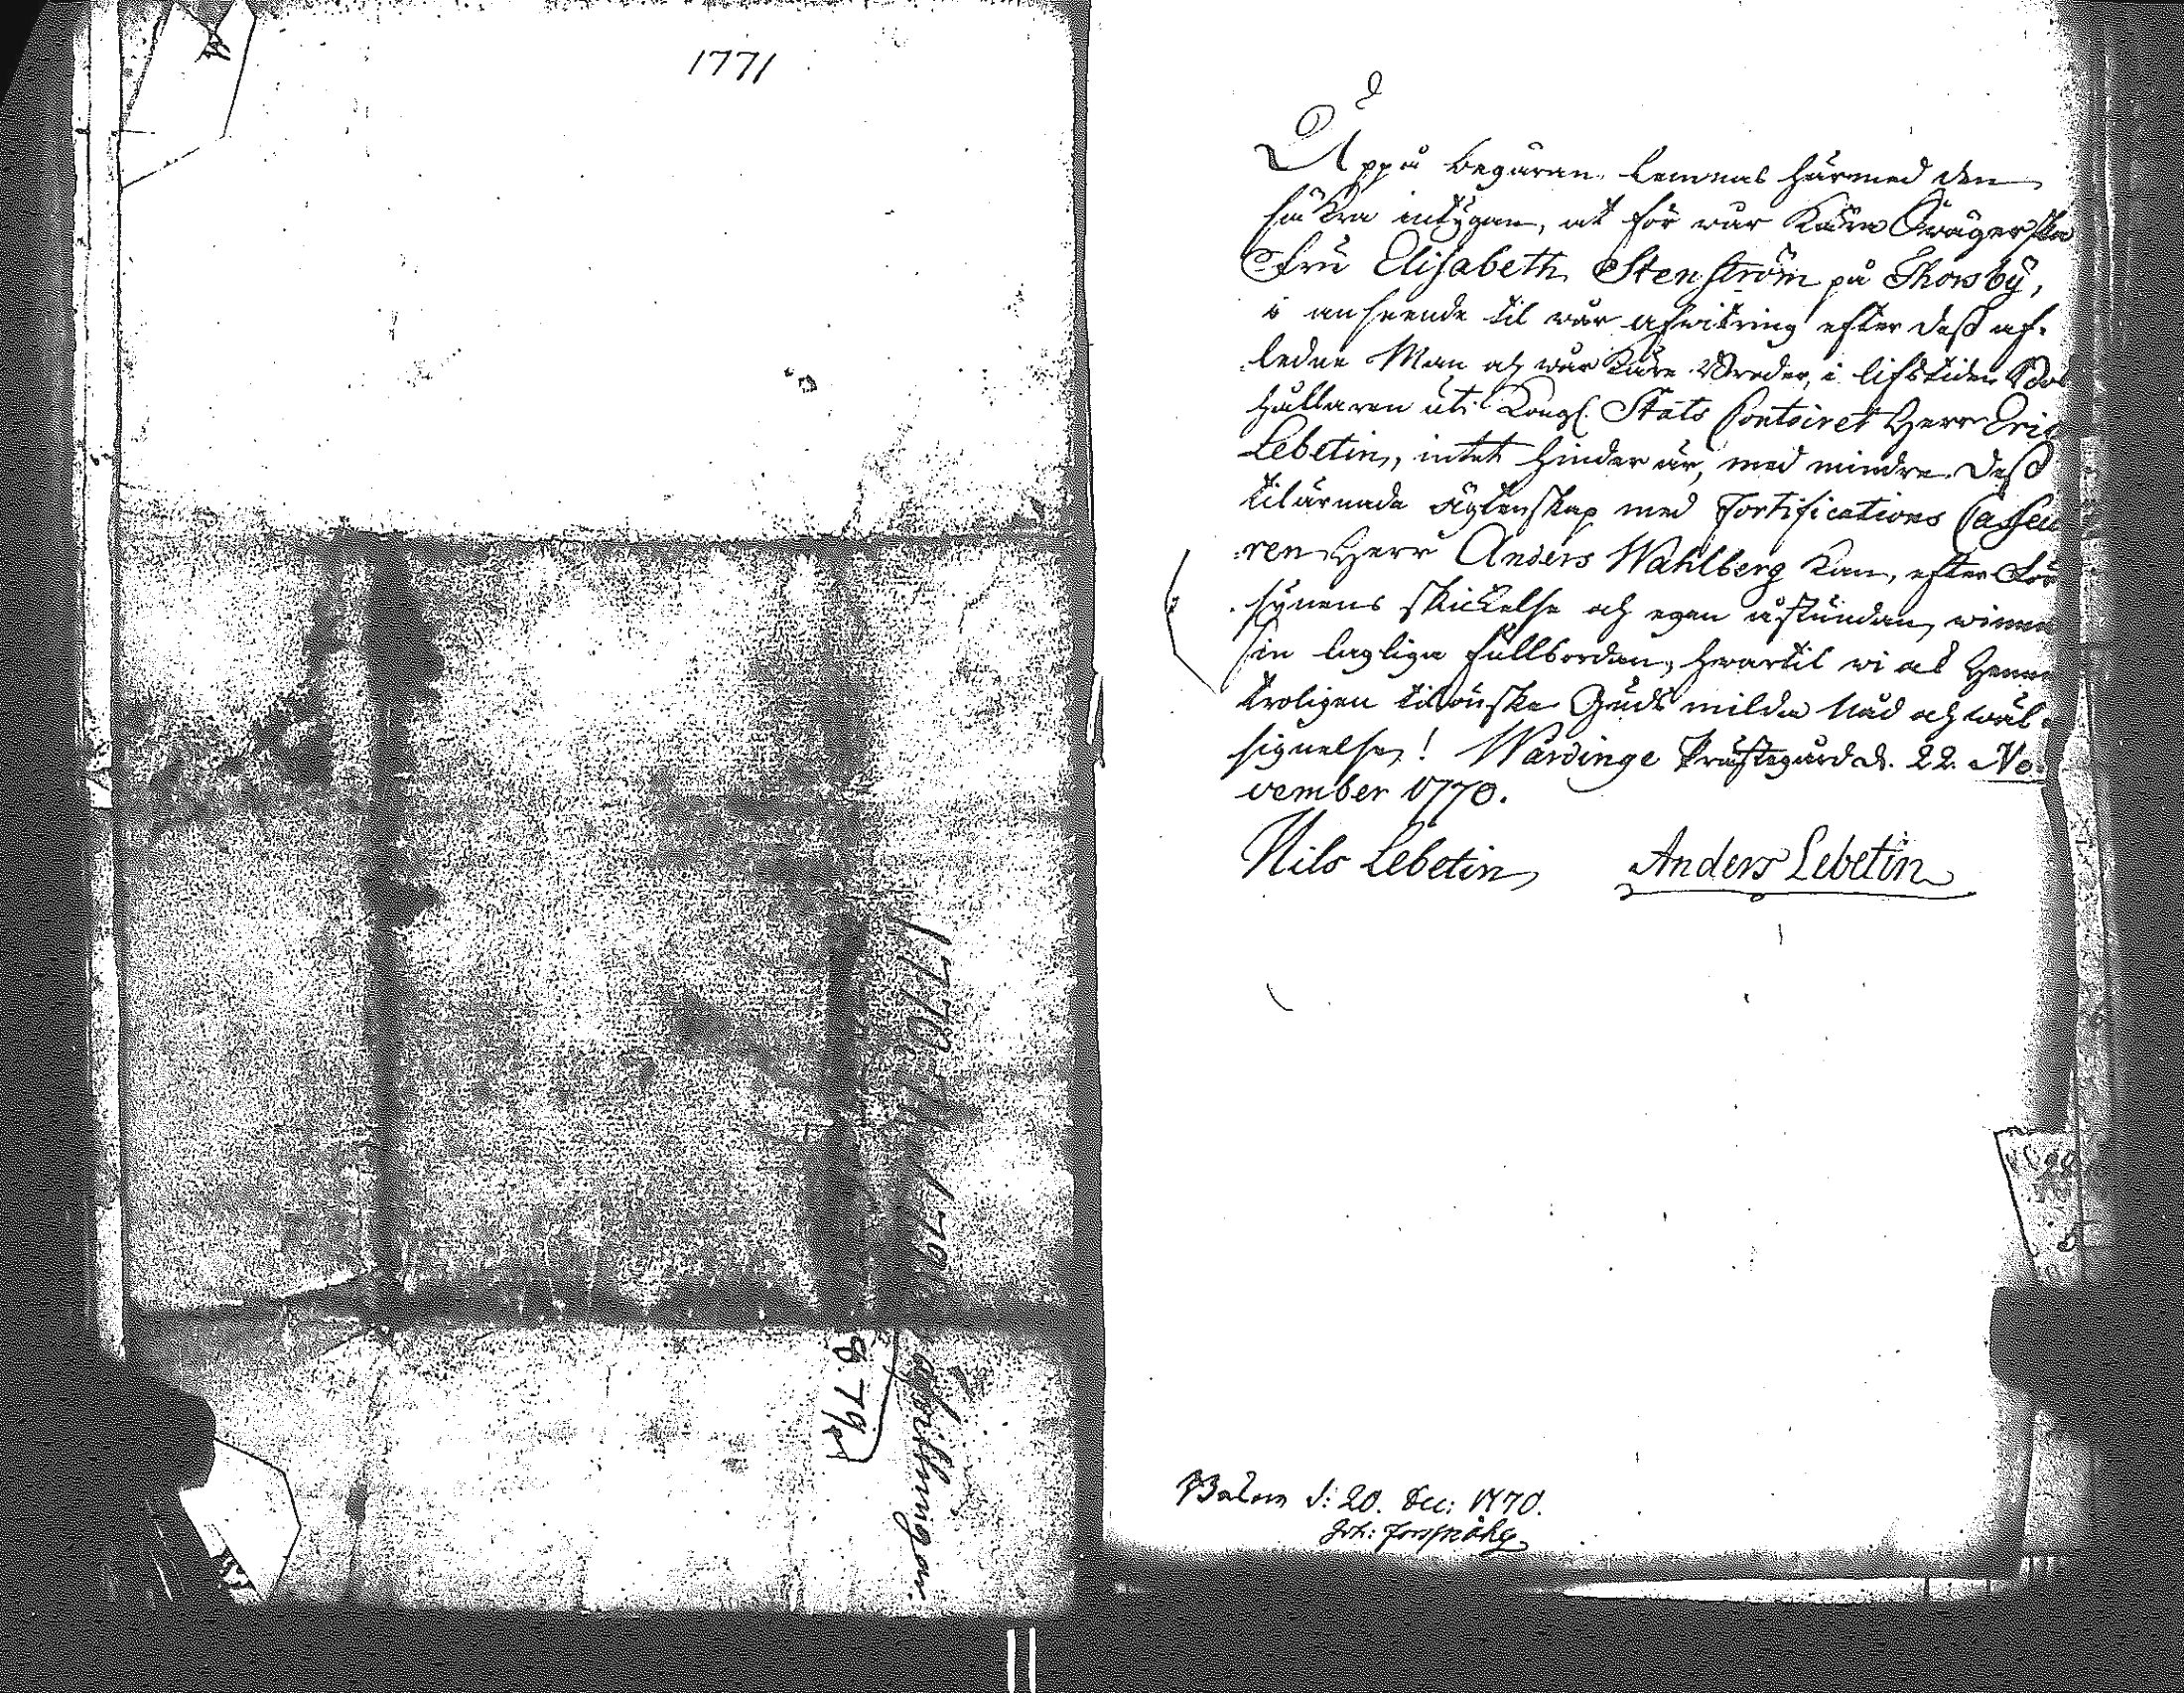 1771
Uppå begäran lemnas härmed den
säkra intygan, at för vår Kära Swägerska
Fru Elisabeth Stenström på Thorsby,
i anseende til vår afwitring efter dess af-
ledne Man och vår Käre Broder, i lifstiden Bok
hållaren uti Kongl. Stats Contoiret Herr Eric
Lebetin, intet hinder är, med mindre dess
tilärnade ägtenskap med Fortifications Casseu
ren Herr Anders Wahlberg kan, efter För
synens skickelse och egen åstundan, winna
sin lagliga fullbordan, hvartil vi at Henne
troligen tilönske Guds milda Nåd och wäl-
signelse! Wårdinge Prästegård d. 22. No-
vember 1770.
Nils Lebetin Anders Lebetin
d: 20. Dec: 1770.
1770
8 79